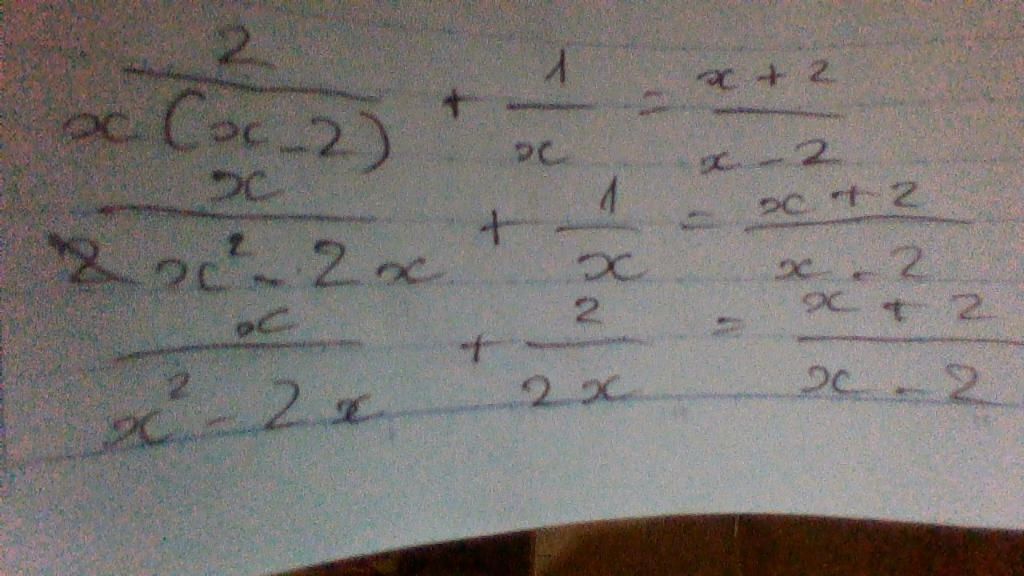 2/(x(x-2)) + 1/x = (x+2)/(x-2)
x/(x²-2x) + 1/x = (x+2)/(x-2)
x/(x²-2x) + 2/(2x) = (x+2)/(x-2)